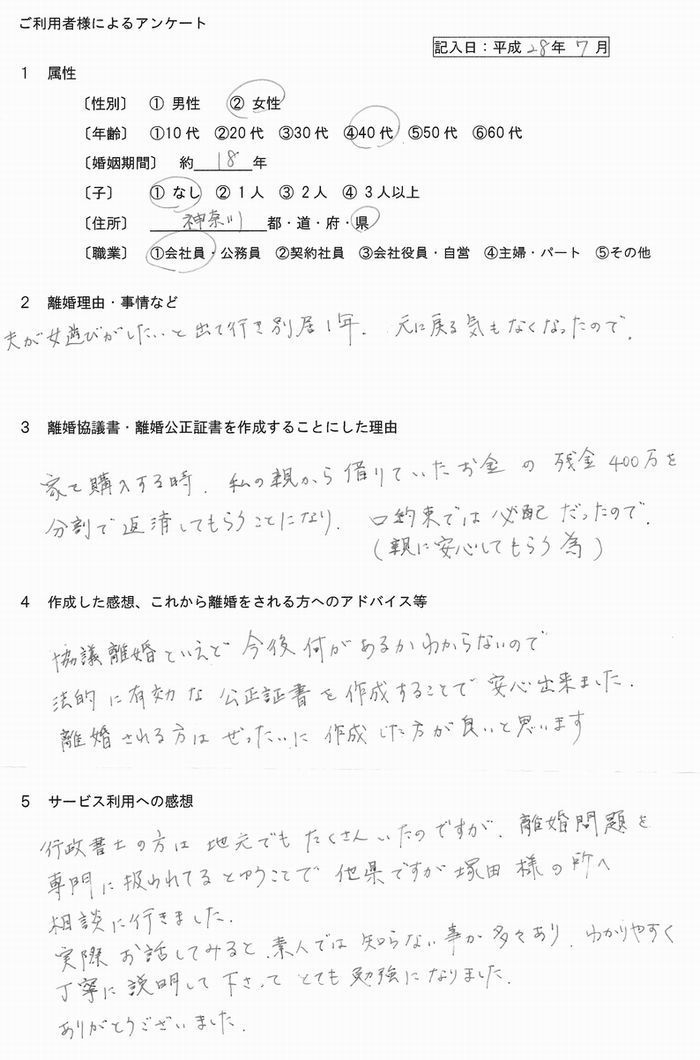 ご利用者様によるアンケート
記入日：平成 28年 7 月
1 属性
〔性別〕 ① 男性 ② 女性
〔年齢〕 ①10代 ②20代 ③30代 ④40代 ⑤50代 ⑥60代
〔婚姻期間〕 約 18 年
〔子〕 ① なし ② 1人 ③ 2人 ④ 3人以上
〔住所〕 神奈川 都・道・府・県
〔職業〕 ①会社員・公務員 ②契約社員 ③会社役員・自営 ④主婦・パート ⑤その他
2 離婚理由・事情など
夫が女遊びがしたいと出て行き別居1年. 元に戻る気もなくなったので.
3 離婚協議書・離婚公正証書を作成することにした理由
家を購入する時、私の親から借りていたお金の残金400万を
分割で返済してもらうことになり、口約束では心配だったので.
(親に安心してもらう為)
4 作成した感想、これから離婚をされる方へのアドバイス等
協議離婚といえど今後何があるかわからないので
法的に有効な公正証書を作成することで安心出来ました.
離婚される方はぜったいに作成した方が良いと思います
5 サービス利用への感想
行政書士の方は地元でもたくさんいたのですが、離婚問題を
専門に扱われてるとゆうことで他県ですが塚田様の所へ
相談に行きました.
実際お話してみると、素人では知らない事が多々あり、わかりやすく
丁寧に説明して下さってとても勉強になりました.
ありがとうございました.